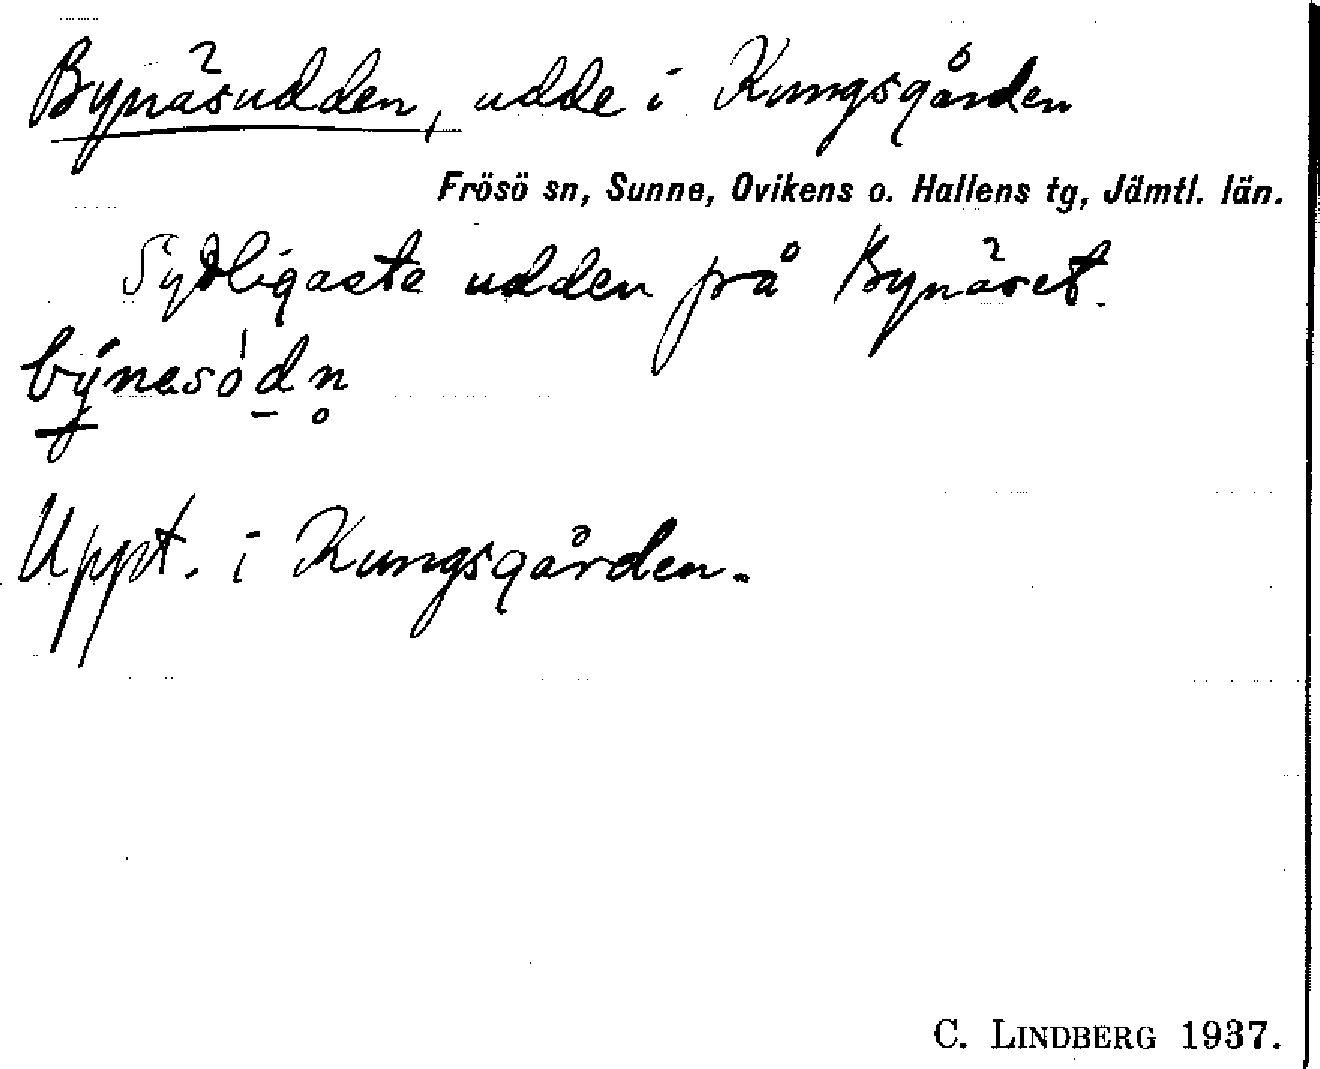 Bynäsudden, udde i Kungsgården
Frösö sn, Sunne, Ovikens o. Hallens tg, Jämtl. län.
Sydligaste udden på Bynäset.
býnesòd̲n̥
Uppt. i Kungsgården.
C. LINDBERG 1937.